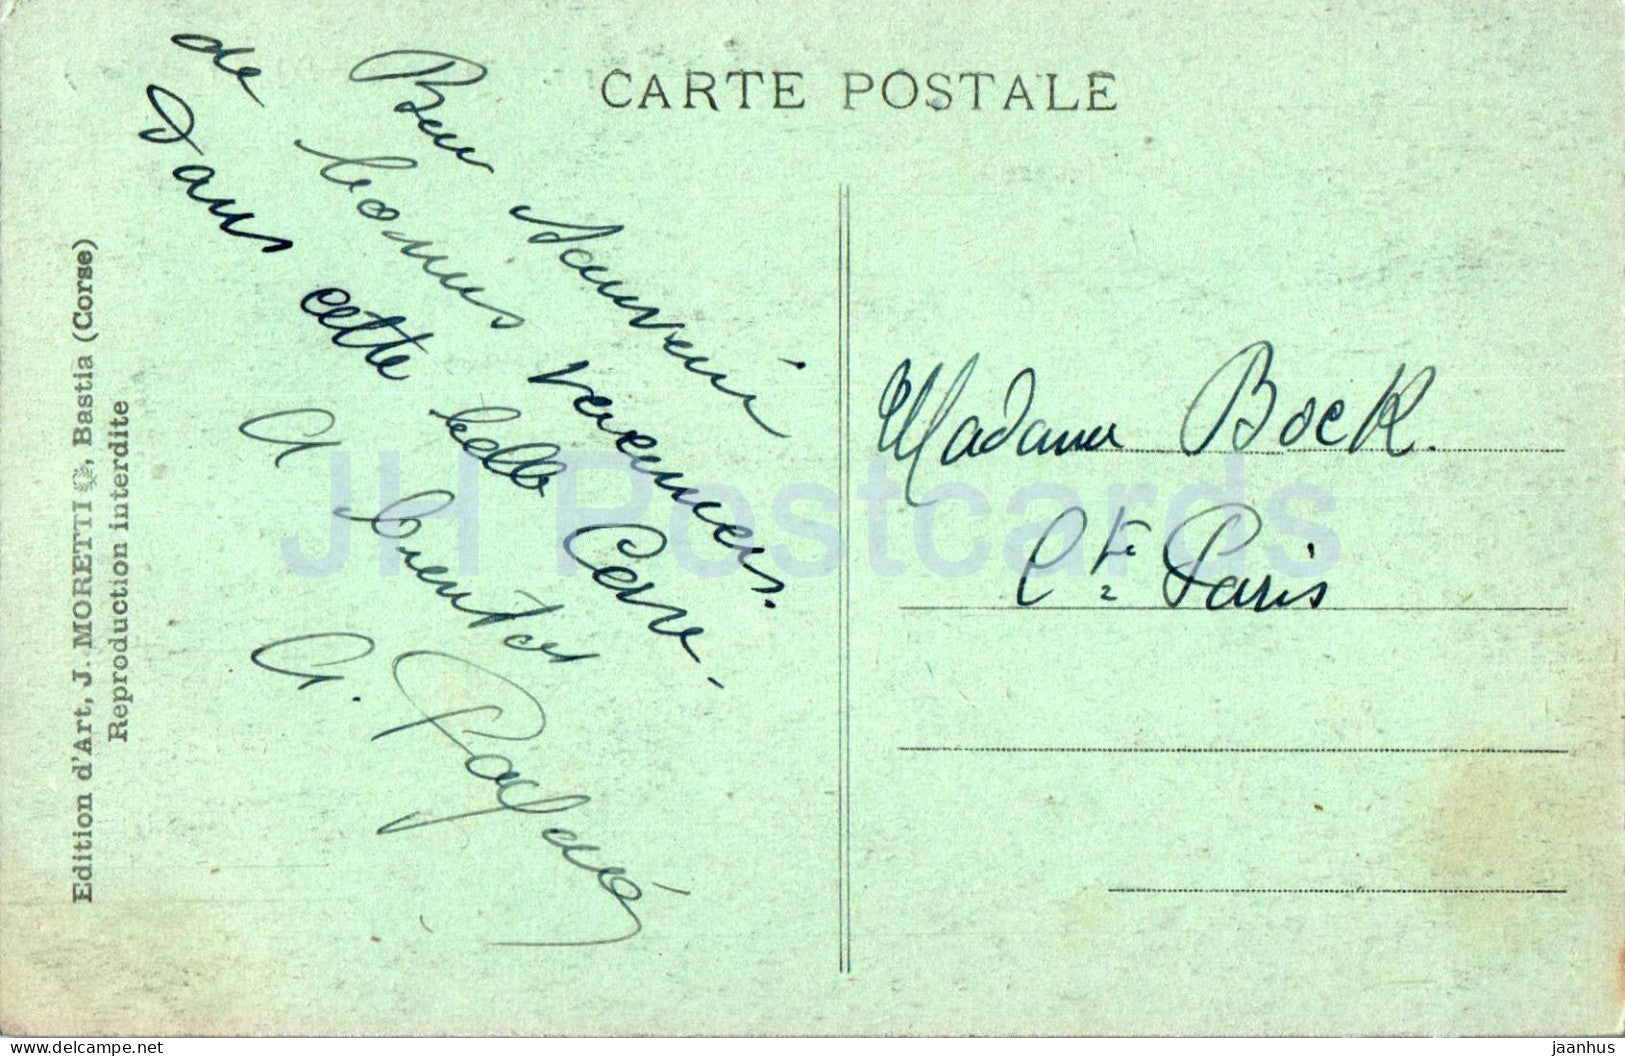 CARTE POSTALE
Bon Souvenir
de bonnes vacances
Dans cette belle Corse.
A bientôt
G.
Madame Bock.
Cte Paris
Edition d'Art, J. MORETTI, Bastia (Corse)
Reproduction interdite
JH Postcards
www.delcampe.net
jaanhus